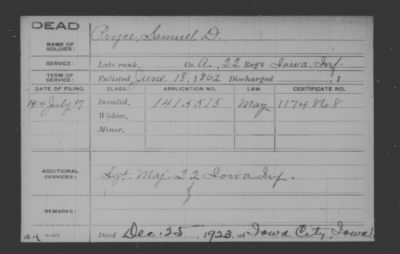 DEAD
NAME OF SOLDIER: Pryce, Samuel D.
SERVICE: Late rank, Co. A, 22 Reg't Iowa Inf.
TERM OF SERVICE: Enlisted June 18, 1862 Discharged , 1
DATE OF FILING. CLASS. APPLICATION NO. LAW. CERTIFICATE NO.
1914 July 17 Invalid, 1415515 May 1174868
Widow,
Minor,
ADDITIONAL SERVICES: Sgt. Maj. 22 Iowa Inf.
REMARKS:
Died Dec. 25 1923, at Iowa City, Iowa